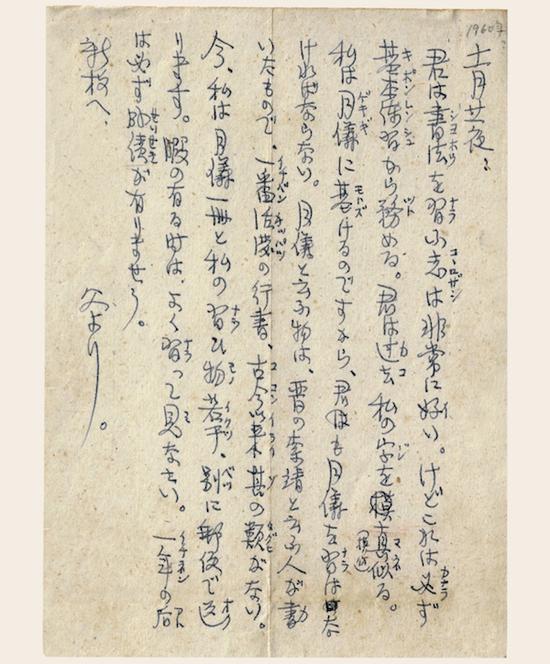 1960年
十一月廿夜：
君は書法を習ふ志は非常に好い。けどこれは必ず
基本練習から務める。君は過去私の字を模真似る。
私は月儀に基けるのですから、君はも月儀を習はな
ければならない。月儀と云ふ物は、晋の索靖と云ふ人が書
いたもので、一番活溌の行書、古今以来其の類がない。
今、私は月儀一冊と私の習ひ物若干、別に郵便で送
ります。暇の有る時は、よく習って見なさい。一年の后
は必ず成績が有りませう。
新枝へ、
父より。